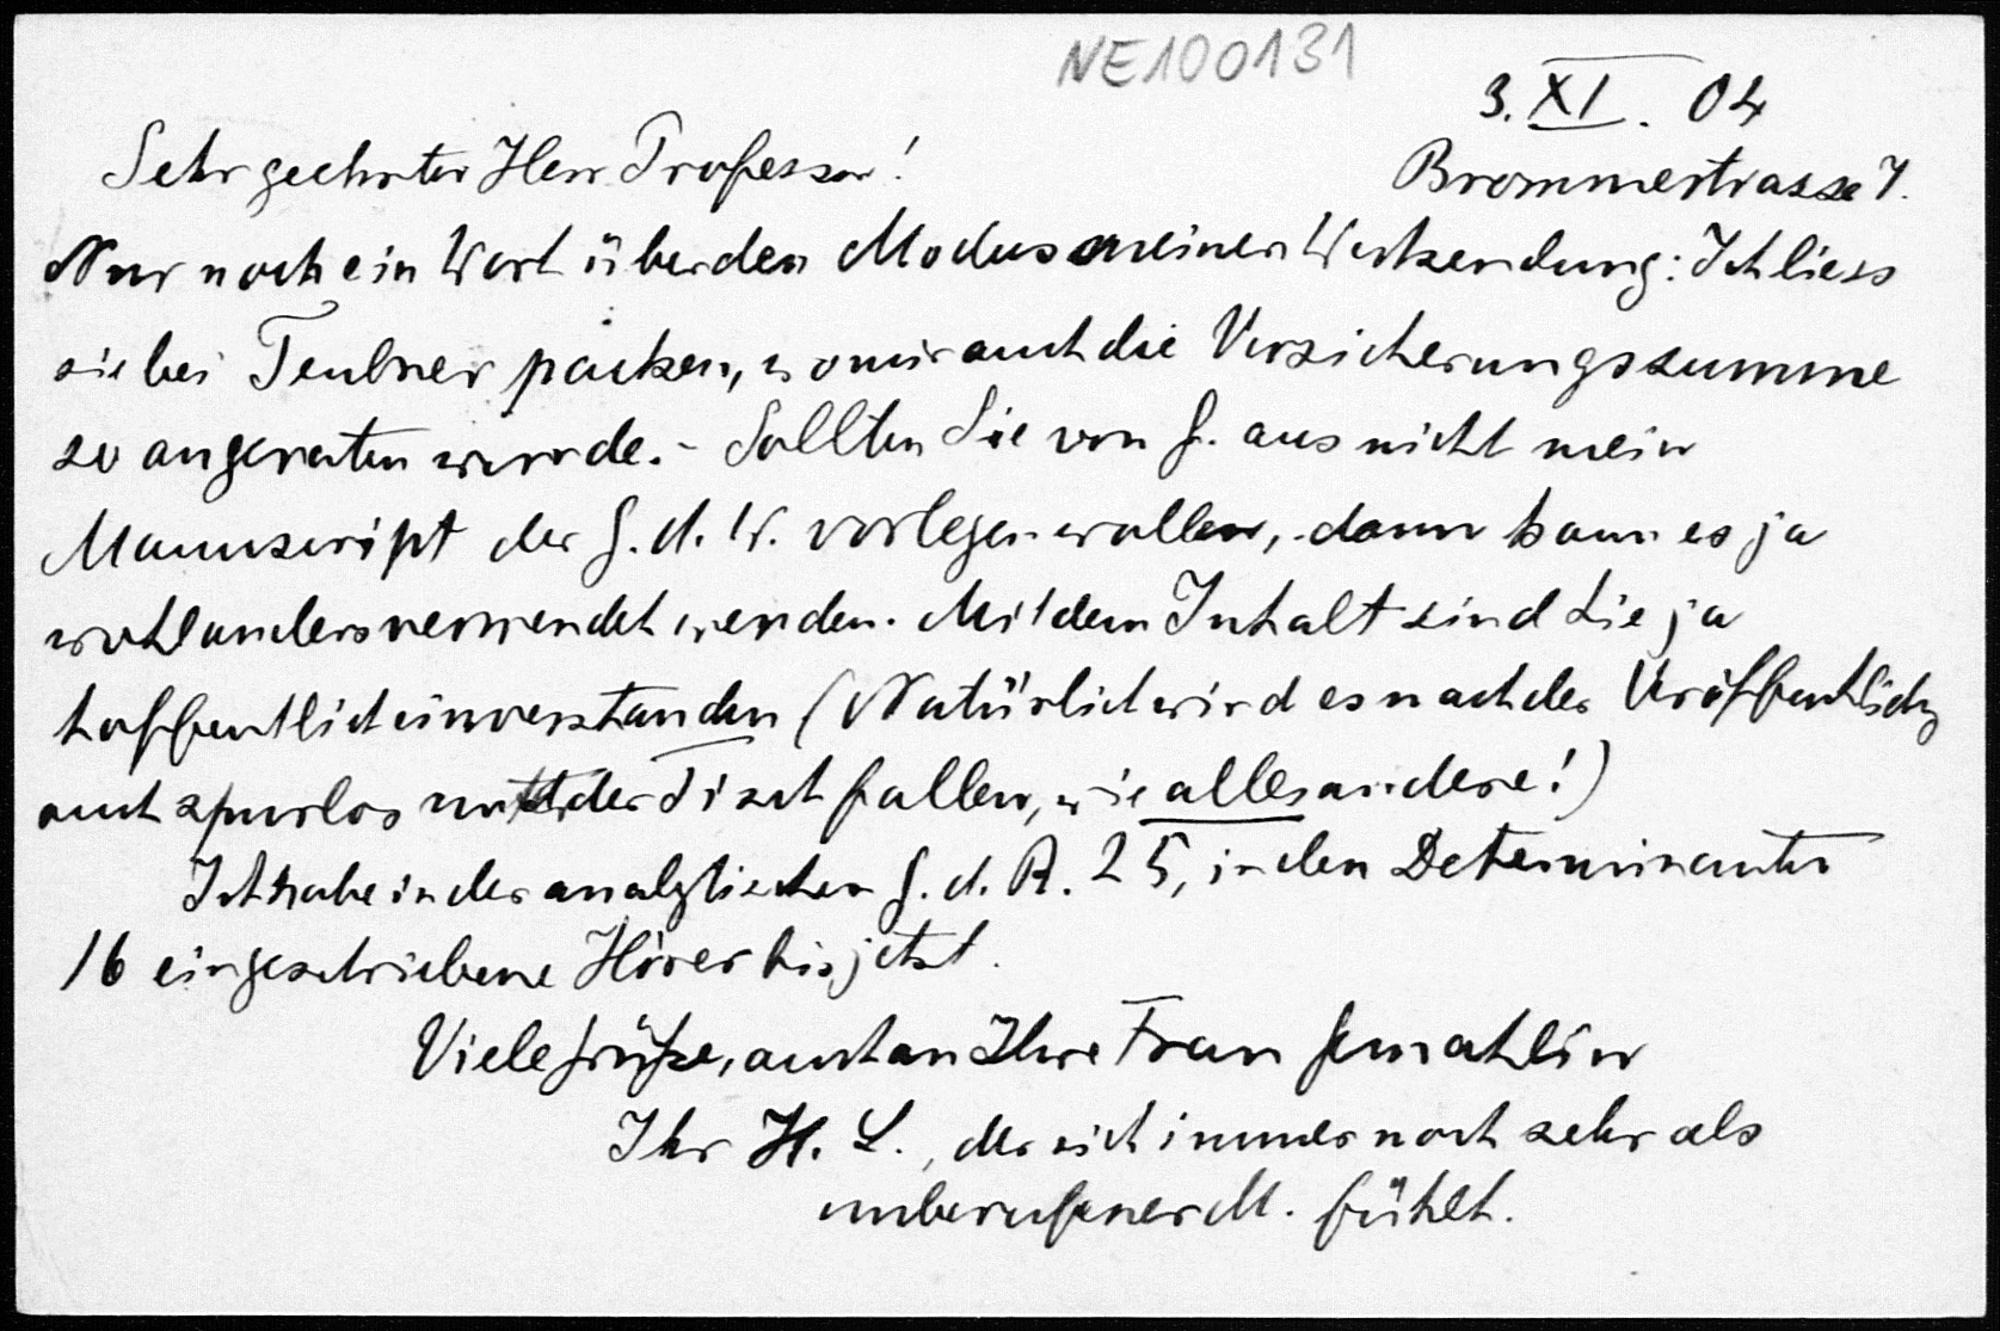 NE100131
3. XI. 04
Sehr geehrter Herr Professor!
Brommestrasse 7.
Nur noch ein Wort über den Modus meiner Wertsendung: Ich liess
sie bei Teubner packen, wo mir auch die Versicherungssumme
so angeraten wurde. – Sollten Sie von G. aus nicht mein
Manuscript der G. d. W. vorlegen wollen, dann kann es ja
wohl anders verwendet werden. Mit dem Inhalt sind Sie ja
hoffentlich einverstanden (Natürlich wird es nach der Veröffentlichg
auch spurlos unter den Tisch fallen, wie alles andere!)
Ich habe in der analytischen G. d. R. 25, in den Determinanten
16 eingeschriebene Hörer bis jetzt.
Viele Grüße, auch an Ihre Frau Gemahlin
Ihr H. L., der sich immer noch sehr als
unberufener M. fühlt.